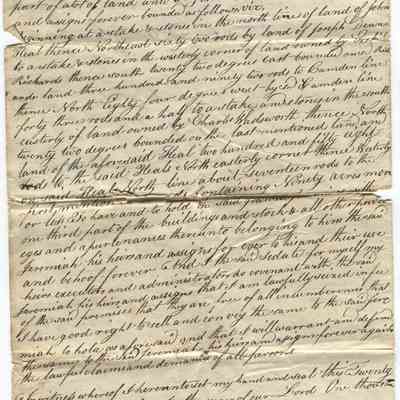 part of a lot of land
and assigns forever bounded as follows, viz,
Beginning at a stake & stones in the north line of land of John
Heal thence Northeast sixty two rods by land of Joseph
to a stake & stones in the westerly corner of land owned by
Richards thence south twenty two degrees east bounded on
land three hundred and ninety two rods to Camden line
thence North Eighty four degrees west by Camden line
forty three rods and a half to a stake and stones in the south
easterly of land owned by Charles thence North
twenty two degrees bounded on the last mentioned line and
land of the aforesaid Heal two hundred and fifty eight
rods to the said Heals North easterly corner thence Westerly
on said Heals North line about seventeen rods to the
first mention Containing Ninety acres more
or less To have and to hold the said with the
one third part of the buildings and stock & all other privil
eges and appurtenances thereunto belonging to him the said
Jeremiah his heirs and assigns for ever to his and their use
and behoof forever And I the said Sedate for myself my
heirs executors and administrators do covenant with the said
Jeremiah his heirs and assigns that I am lawfully seized in fee
of the said premises that they are free of all incumbrances that
I have good right to sell and convey the same to the said Jere
miah to hold as aforesaid and that I will warrant and defend
the same to the said Jeremiah his heirs and assigns forever against
the lawful claims and demands of all persons
In witness whereof I hereunto set my hand and seal this Twenty
Lord One thous